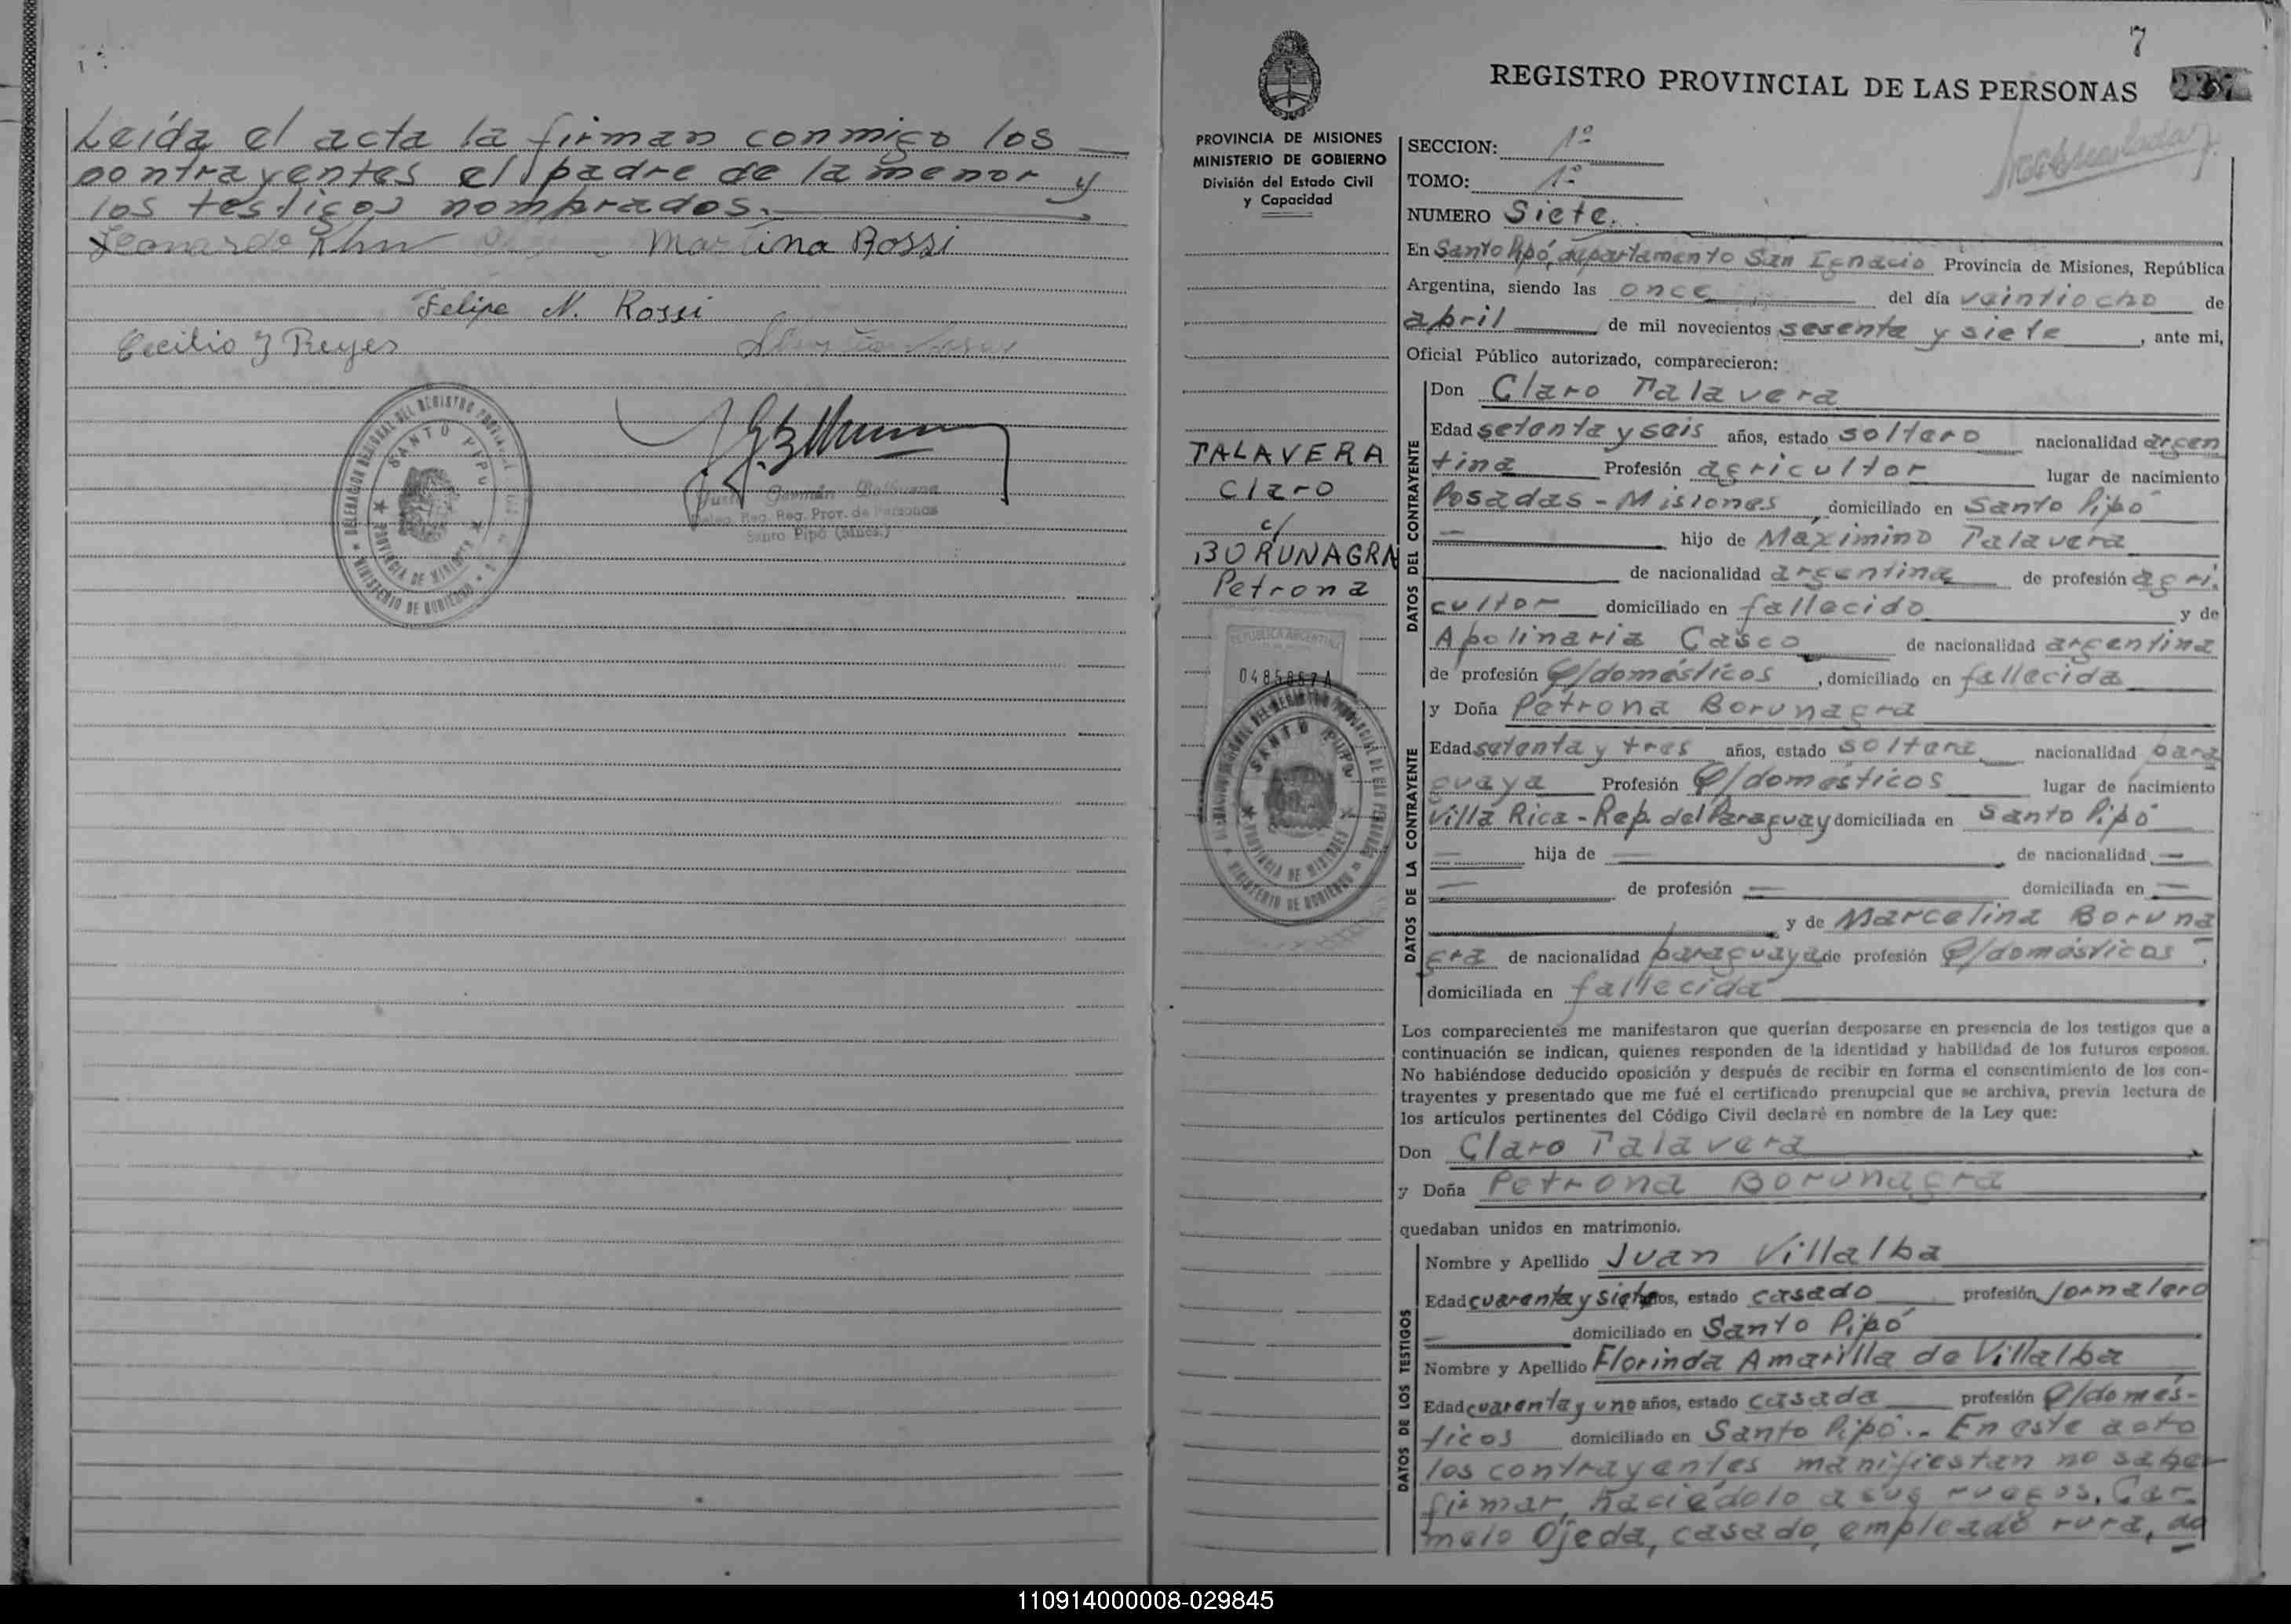 Leída el acta la firman conmigo los
contrayentes el padre de la menor y
los testigos nombrados.
Leonardo Martina Rossi
Felipe N. Rossi
Cecilio J Reyes
DELEGACION REGIONAL DEL REGISTRO PROVINCIAL DE LAS PERSONAS
SANTO PIPO
PROVINCIA DE MISIONES
MINISTERIO DE GOBIERNO
Germán Balbuena
Deleg. Reg. Reg. Prov. de Personas
Santo Pipó (Mnes.)
7
REGISTRO PROVINCIAL DE LAS PERSONAS
PROVINCIA DE MISIONES
MINISTERIO DE GOBIERNO
División del Estado Civil
y Capacidad
TALAVERA
Claro
c/
BORUNAGRA
Petrona
REPUBLICA ARGENTINA
0485867A
DELEGACION REGIONAL DEL REGISTRO PROVINCIAL DE LAS PERSONAS
SANTO PIPO
PROVINCIA DE MISIONES
MINISTERIO DE GOBIERNO
SECCION: 1º
TOMO: 1º
NUMERO Siete.
En Santo Pipó, departamento San Ignacio Provincia de Misiones, República
Argentina, siendo las once del día veintiocho de
abril de mil novecientos sesenta y siete, ante mi,
Oficial Público autorizado, comparecieron:
DATOS DEL CONTRAYENTE
Don Claro Talavera
Edad setenta y seis años, estado soltero nacionalidad argen
tina Profesión agricultor lugar de nacimiento
Posadas - Misiones, domiciliado en Santo Pipó
hijo de Maximino Talavera
de nacionalidad argentina de profesión agri.
cultor domiciliado en fallecido y de
Apolinaria Casco de nacionalidad argentina
de profesión Q/domésticos, domiciliado en fallecida
DATOS DE LA CONTRAYENTE
y Doña Petrona Borunagra
Edad setenta y tres años, estado soltera nacionalidad para
guaya Profesión Q/domésticos lugar de nacimiento
Villa Rica - Rep. del Paraguay domiciliada en Santo Pipó
— hija de — de nacionalidad —
— de profesión — domiciliada en —
y de Marcelina Boruna
gra de nacionalidad paraguaya de profesión Q/domésticos,
domiciliada en fallecida
Los comparecientes me manifestaron que querían desposarse en presencia de los testigos que a
continuación se indican, quienes responden de la identidad y habilidad de los futuros esposos.
No habiéndose deducido oposición y después de recibir en forma el consentimiento de los con-
trayentes y presentado que me fué el certificado prenupcial que se archiva, previa lectura de
los artículos pertinentes del Código Civil declaré en nombre de la Ley que:
Don Claro Talavera
y Doña Petrona Borunagra
quedaban unidos en matrimonio.
DATOS DE LOS TESTIGOS
Nombre y Apellido Juan Villalba
Edad cuarenta y siete años, estado casado profesión Jornalero
domiciliado en Santo Pipó
Nombre y Apellido Florinda Amarilla de Villalba
Edad cuarenta y uno años, estado casada profesión Q/domés-
ticos domiciliado en Santo Pipó.- En este acto
los contrayentes manifiestan no saber
firmar, haciédolo a sus ruegos, Car
melo Ojeda, casado, empleado rura, do
110914000008-029845